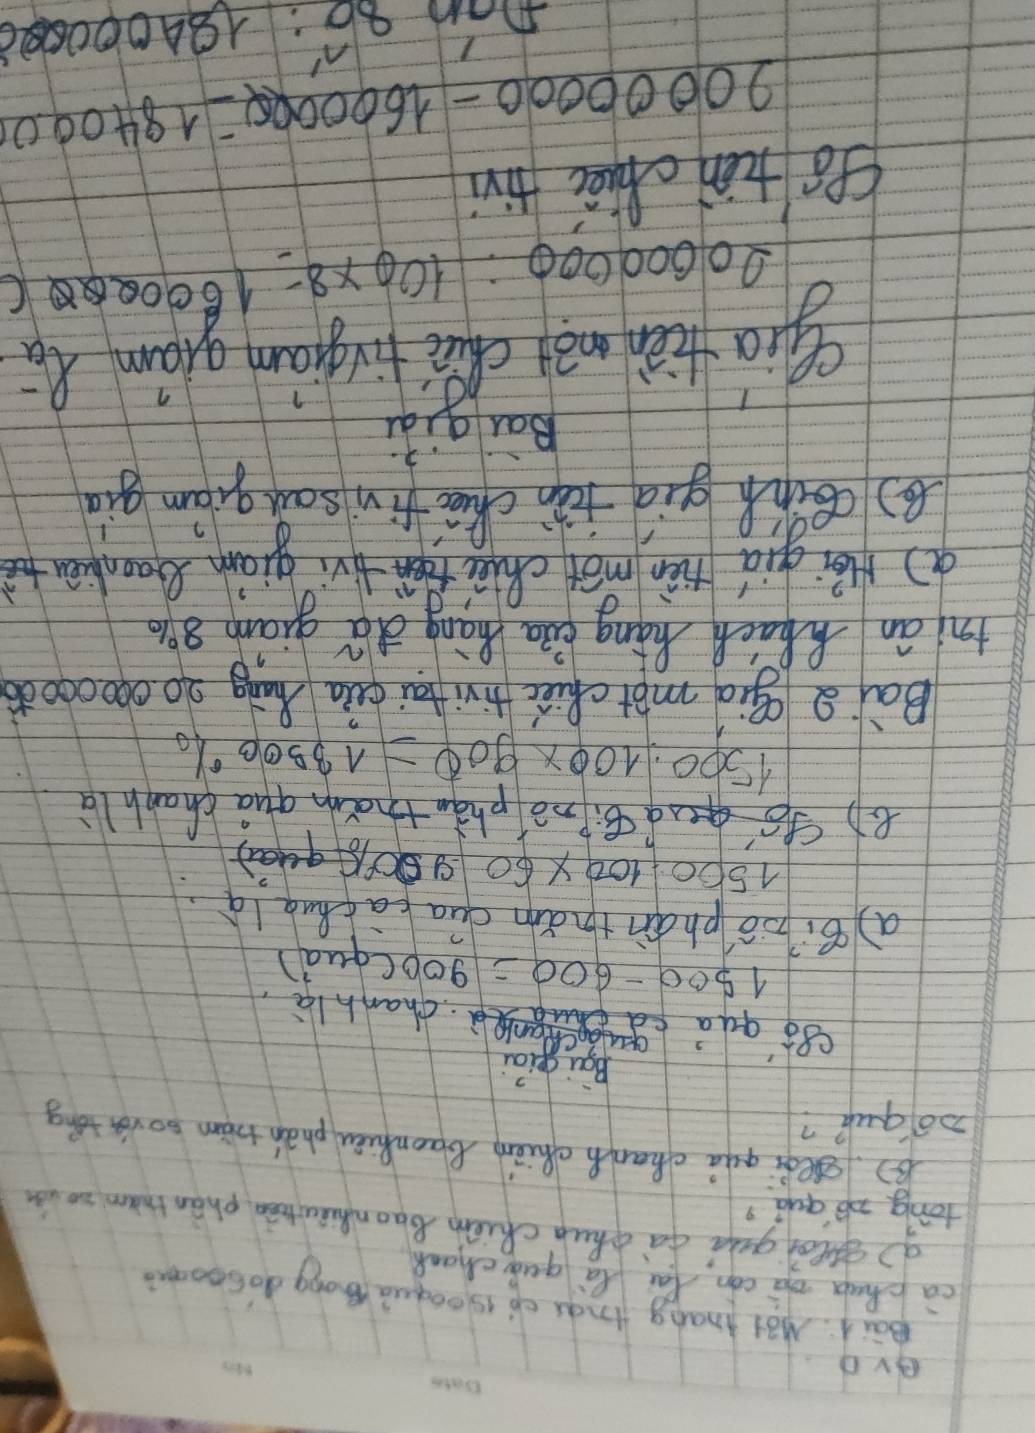 BVD
Bài 1: Một trang trại có 1500 quả trong đó 600 quả
cà chua và còn lại là quả chanh
a) Hỏi quả cà chua chiếm bao nhiêu phần trăm so với
tổng số quả?
b) Hỏi quả chanh chiếm bao nhiêu phần trăm so với tổng
số quả?
Bài giải
Số quả chanh là
1500 - 600 = 900 (quả)
a) Tỉ số phần trăm của cà chua là
1500 : 100 x 60
b) Tỉ số phần trăm quả chanh là
1500 : 100 x 900 = 13500 %
Bài 2 Giá một chiếc tivi tại cửa hàng 20.000.000 đồ
tri ân khách hàng cửa hàng đã giảm 8%
a) Hỏi giá tiền một chiếc tivi giảm bao nhiêu
b) tính giá tiền chiếc tivi sau giảm giá
Bài giải
Giá tiền một chiếc tivi giảm giảm là
20000000 : 100 x 8 =
Số tiền chiếc tivi
Đáp số: